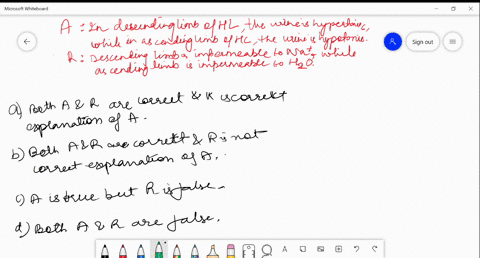 Microsoft Whiteboard
A : In descending limb of HL, the urine is hypertonic,
while in ascending limb of HL, the urine is hypotonic.
R : Descending limb is impermeable to Na+, while
ascending limb is impermeable to H2O.
Sign out
a) Both A & R are correct & R is correct
explanation of A.
b) Both A & R are correct & R is not
correct explanation of A.
c) A is true but R is false.
d) Both A & R are false.